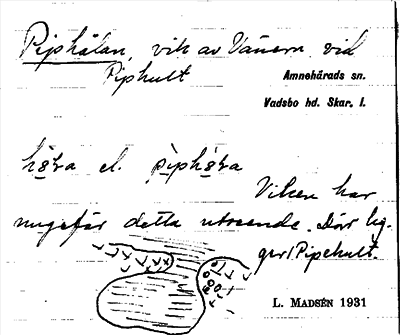 Piphålan, vik av Vänern vid
Piphult
Amnehärads sn.
Vadsbo hd. Skar. l.
håla el. pìphåla
Viken har
ungefär detta utseende. Där lig-
ger Pipehult.
L. MADSÉN 1931